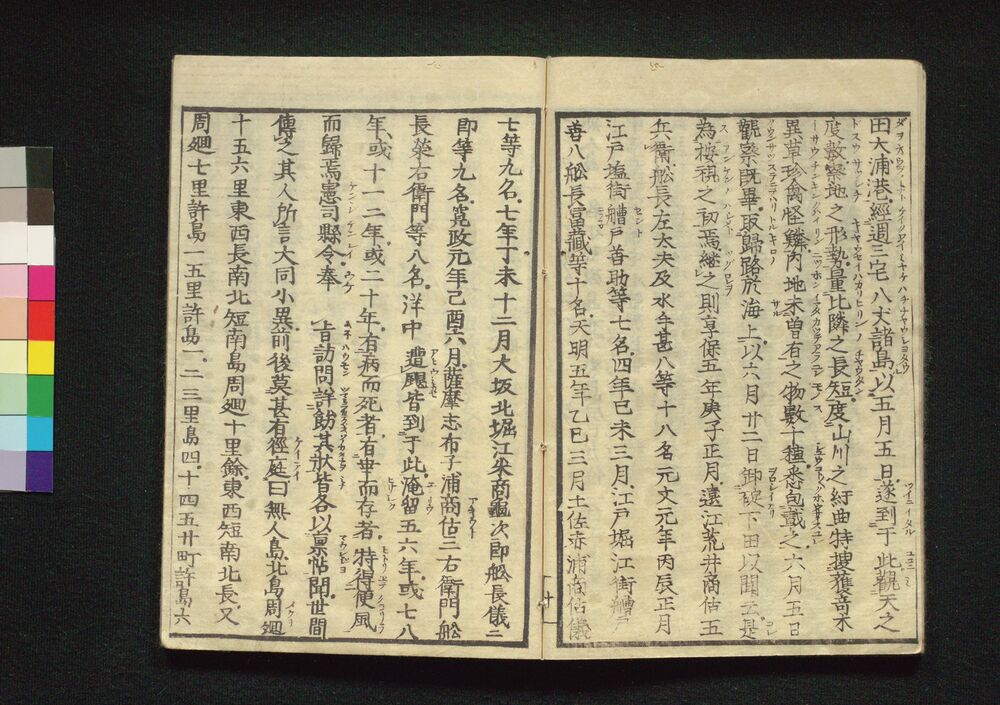 田大浦港經週三宅八丈諸島以五月五日遂到于此觀天之
度數察地之形勢量比隣之長短度山川之紆曲特捜獲奇木
異草珍禽怪鱗內地未曽有之物數十種悉包戴之六月五日
觀察既畢取歸路於海上以六月廿二日卸碇下田以聞云是
為按稱之初焉継之則享保五年庚子正月遠江荒井商估五
兵衛舩長左太夫及水手甚八等十八名元文元年丙辰正月
江戸塩街艚戸善助等七名四年己未三月江戸堀江街艚戸
善八舩長富藏等十名天明五年乙巳三月土佐赤浦商估儀
七等九名七年丁未十二月大坂北堀江米商龜次郎舩長儀二
郎等九名寛政元年己酉六月薩摩志布子浦商估三右衛門舩
長榮右衛門等八名洋中遭颶皆到于此淹留五六年或七八
年或十一二年或二十年有病而死者有畢而存者特得便風
而歸焉憲司縣令奉 旨訪問詳飭其状皆各以禀帖聞世間
傳之其人所言大同小異前後莫甚有徑庭曰無人島北島周廻
十五六里東西長南北短南島周廻十里餘東西短南北長又
周廻七里許島一五里許島一二三里島四十四五廿町許島六